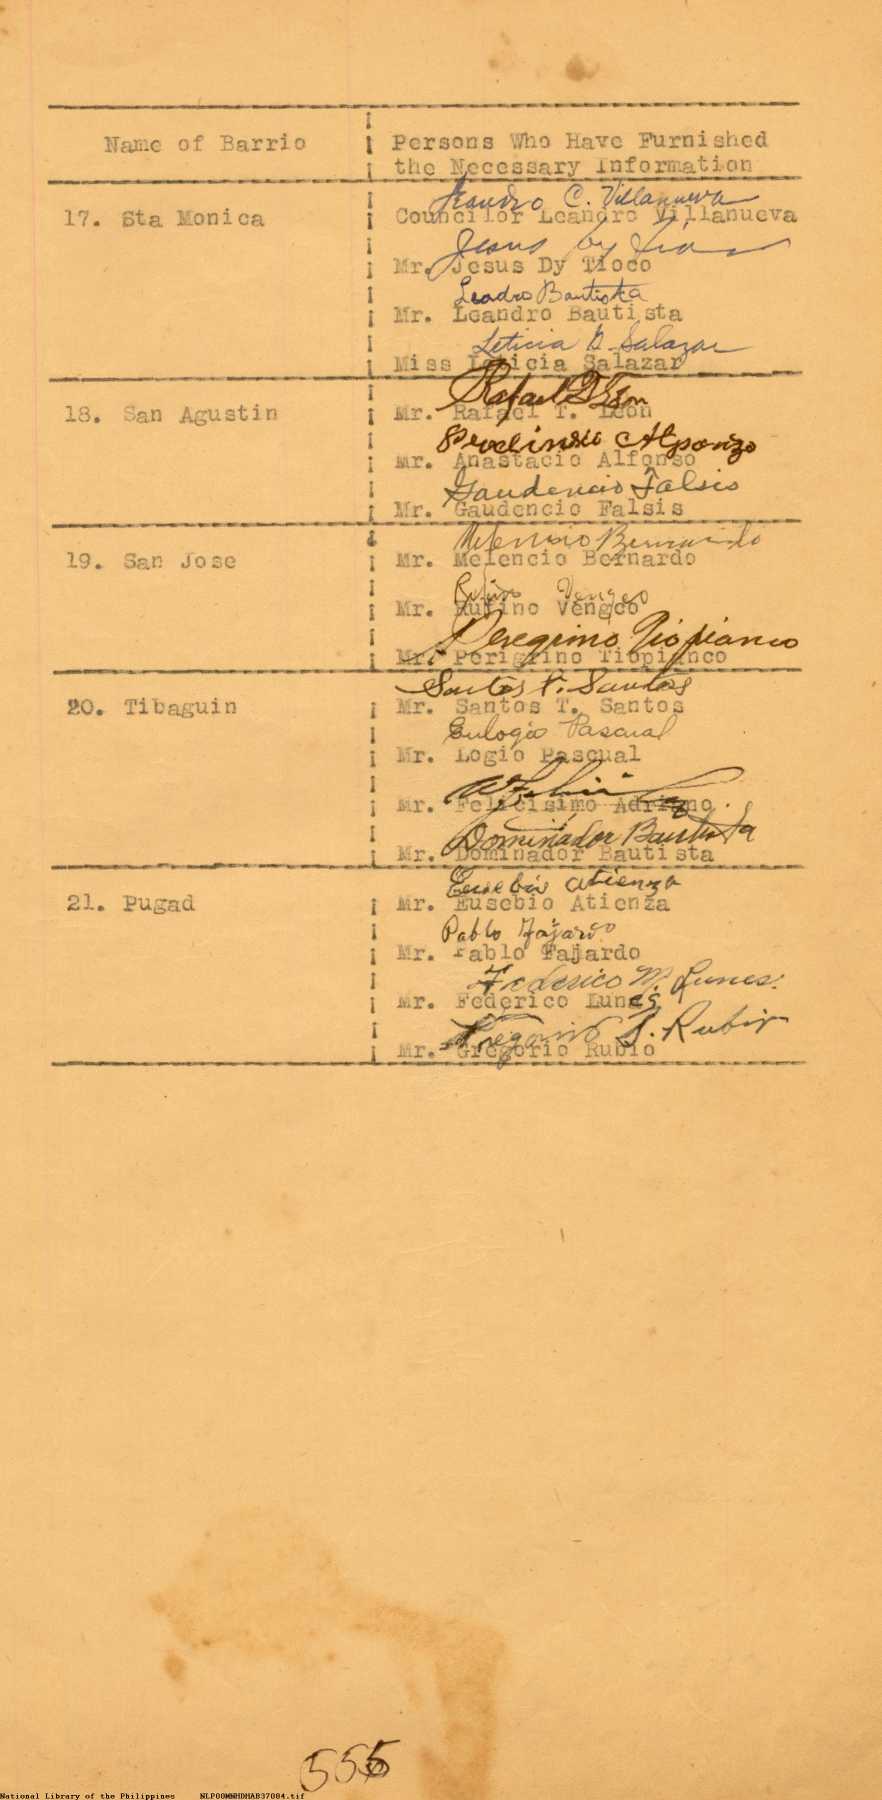 Name of Barrio
Persons Who Have Furnished
the Necessary Information
17. Sta Monica
Leandro C. Villanueva
Councilor Leandro Villanueva
Jesus Dy
Mr. Jesus Dy Tioco
Leadro Bautista
Mr. Leandro Bautista
Leticia D. Salazar
Miss Leticia Salazar
18. San Agustin
Rafael
Mr. Rafael T. Leon
Mr. Anastacio Alfonso
Gaudencio Falsis
Mr. Gaudencio Falsis
19. San Jose
Melencio Bernardo
Mr. Melencio Bernardo
Rufino Vengco
Mr. Rufino Vengco
Peregrino Tiopianco
Mr. Perigrino Tiopianco
20. Tibaguin
Santos T. Santos
Mr. Santos T. Santos
Eulogio Pascual
Mr. Logio Pascual
Mr. Felicisimo Adriano.
Dominador Bautista
Mr. Dominador Bautista
21. Pugad
Eusebio Atienza
Mr. Eusebio Atienza
Pablo Fajardo
Mr. Pablo Fajardo
Federico M. Lunes.
Mr. Federico Lunes
Gregorio S. Rubio
Mr. Gregorio Rubio
555
National Library of the Philippines NLPOOMNHDHAB37084.tif